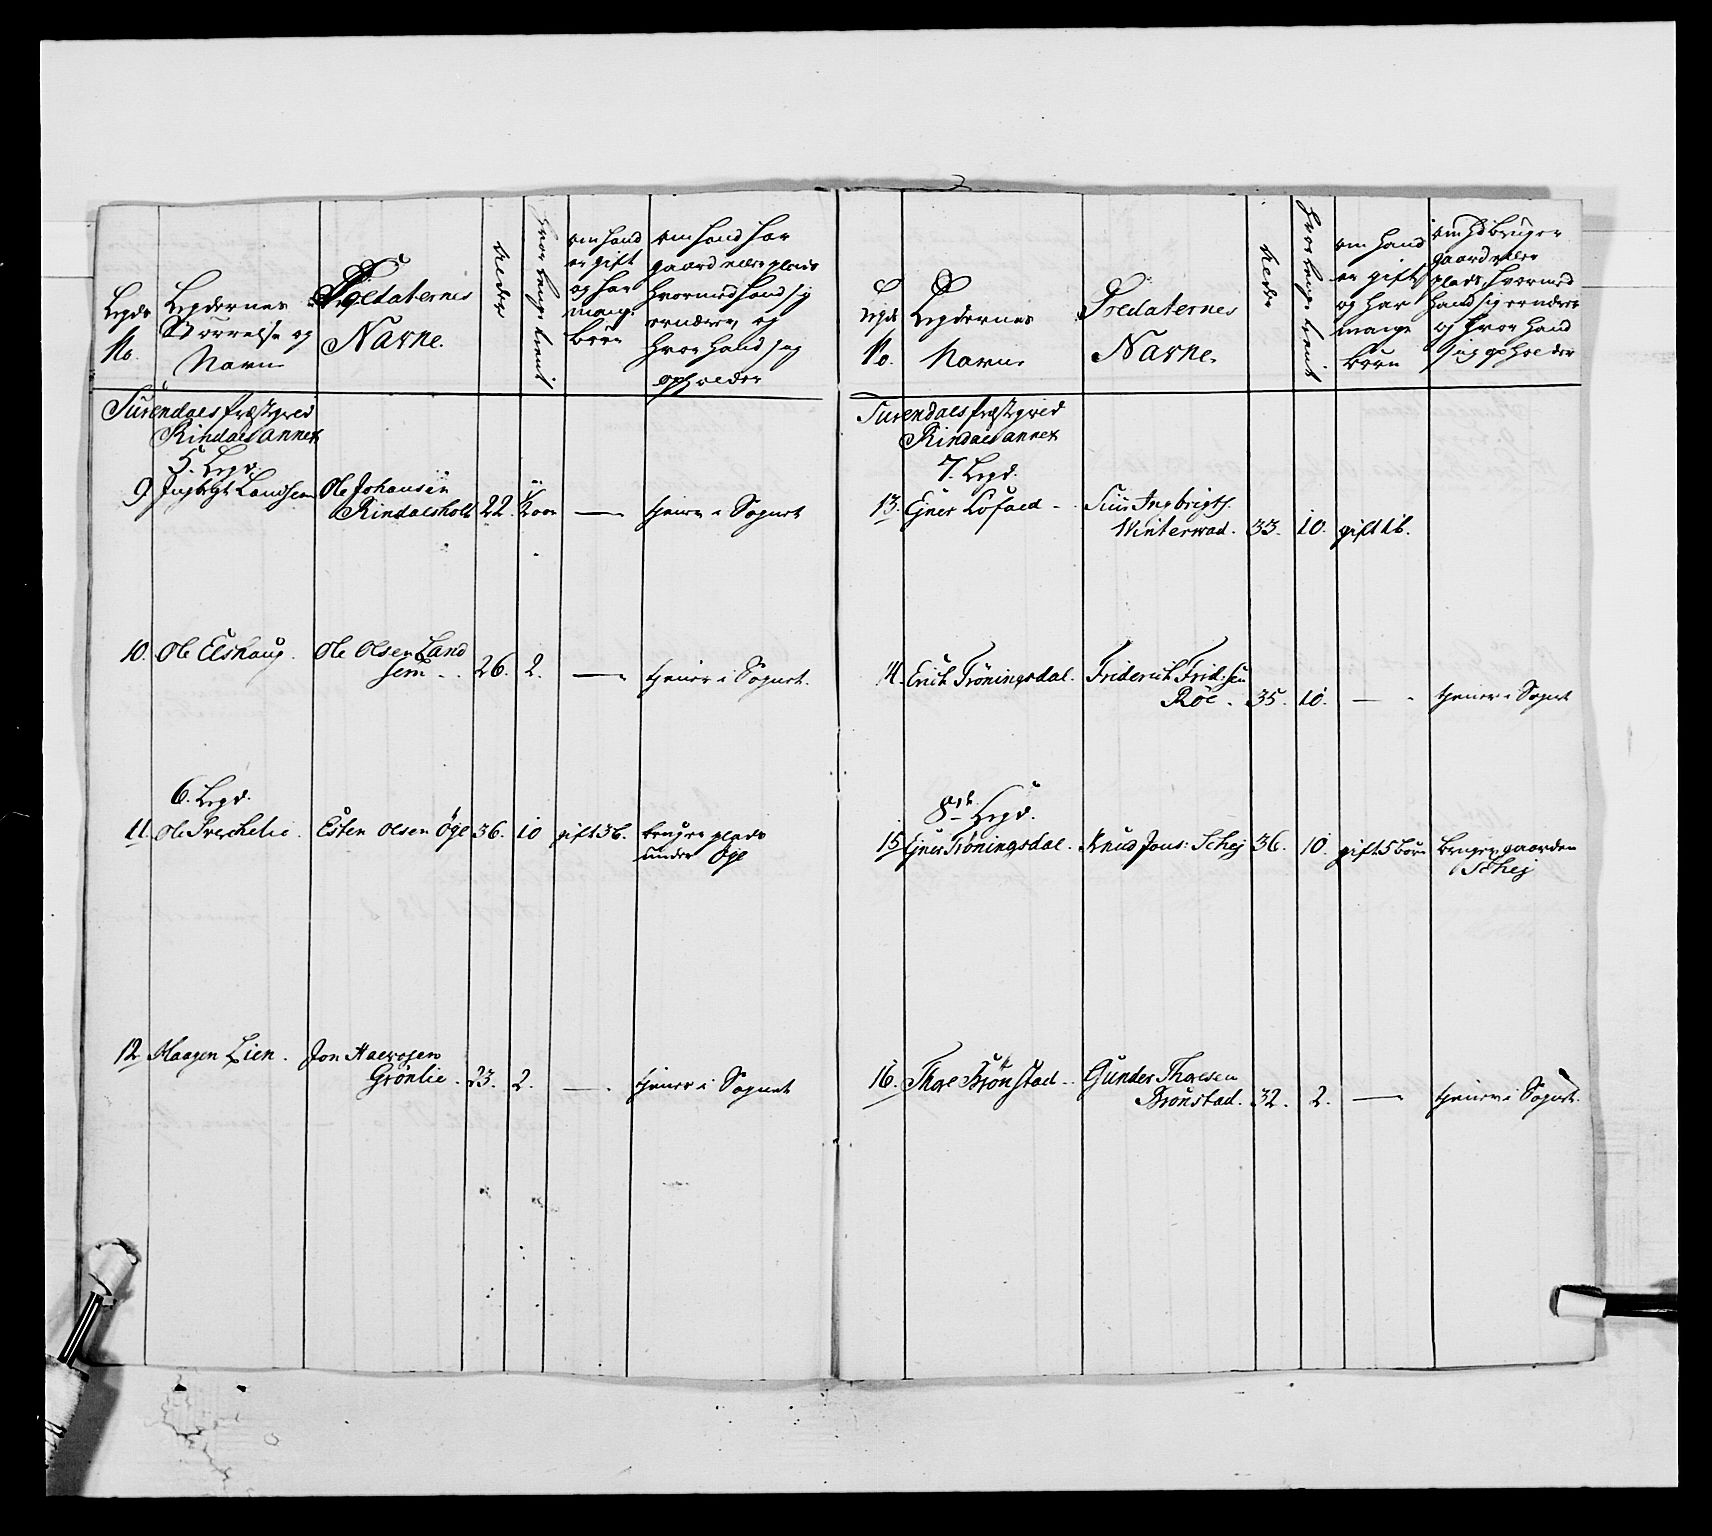 Legds
No.
Legdernes
Störrelse og
Navn
Soldaternes
Navne.
Alder
hvor lenge tient
om hand
er gift
og har
mange
börn
om hand har
gaard eller plads
hvormed hand sig
ernærer og
hvor hand sig
opholder
Surendals præstegield
Rindals annex
5. Legd.
9 Ingbrigt Landsem Ole Johansen
Rindalsholt 22. 1/2 aar — tiener i Sognet
10. Ole Elshaug. Ole Olsen Land
sem . . 26. 2. — tjener i Sognet.
6. Legd.
11. Ole Tverlie. Esten Olsen Öye 36. 10 gift 3 b. bruger plads
under Öye
12 Haagen Lien. Jon Halvorsen
Grönlie. 23. 2. — tjener i Sognet
Legds
No.
Legdernes
Navn.
Soldaternes
Navne.
Alder
hvor lenge tient
om hand
er gift
og har
mange
börn
om hd bruger
gaard eller
plads, hvormed
hand sig ernærer
og hvor hand
sig opholder
Surendals præstegield
Rindals annex
7. Legd.
13. Ejner Lofald - Siur Ingbrigts.
Winterwad. 33. 10. gift 1 b.
14. Erich Tröningsdal. Friderich Frid:sen
Röe. 35. 10. — tjener i Sognet
8de Legd.
15 Ejner Tröningsdal. Knud Jons: Schej 36. 10. gift 5 börn bruger gaarden
Schej
16. Thore Brönstad. Gunder Thoresen
Brönstad. 32. 2. — tjener i Sognet.